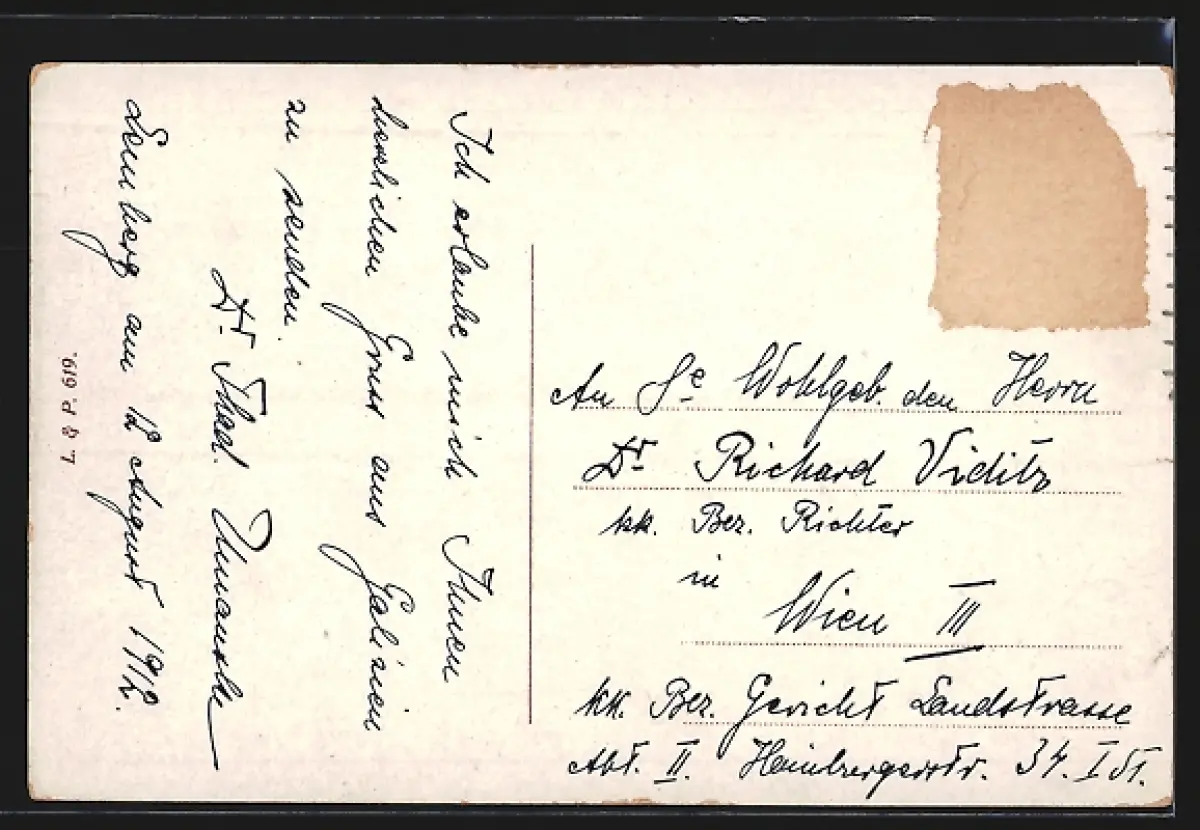 Ich erlaube mich Ihnen
herzlichen Gruss aus Galizien
zu senden.
Dr. Thad.
Lemberg am 12 August 1912.
L. & P. 919.
An Se Wohlgeb. den Herrn
Dr Richard Viditz
kk. Bez. Richter
in
Wien III
kk. Bez. Gericht Landstrasse
Abt. II. Hainburgerstr. 34. I St.